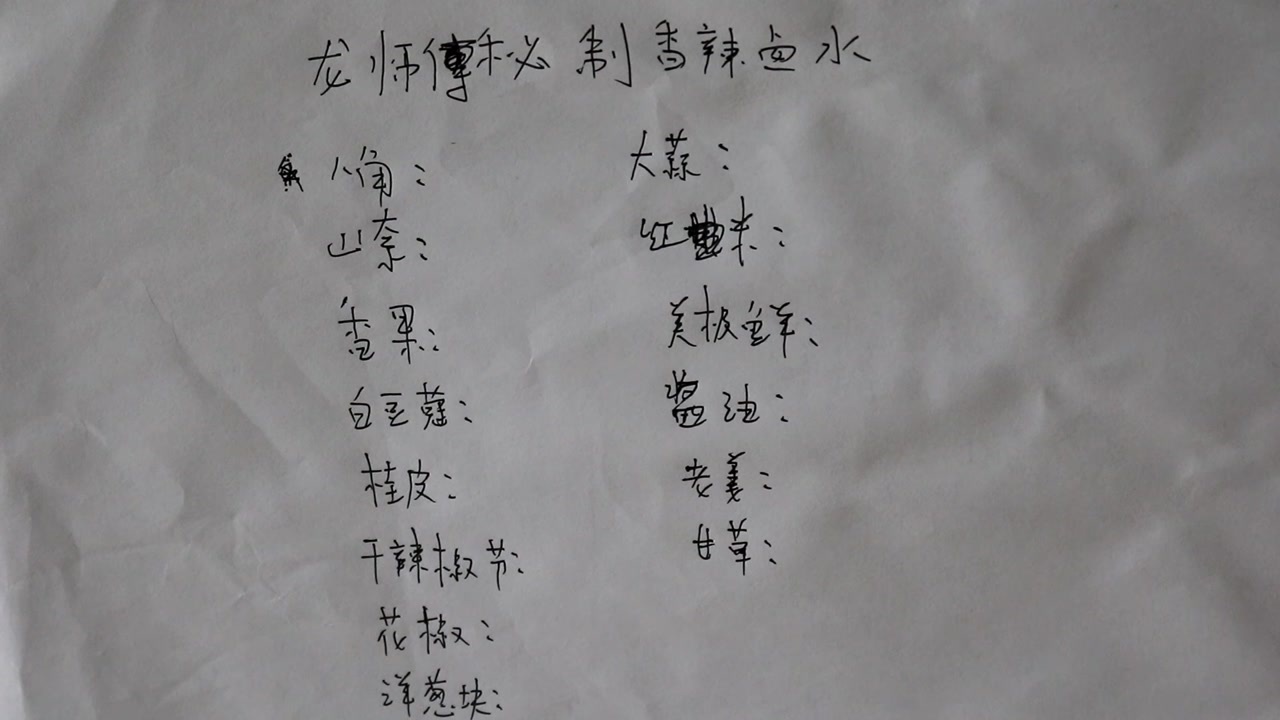 龙师傅秘制香辣卤水
八角:
山奈:
香果:
白豆蔻:
桂皮:
干辣椒节:
花椒:
洋葱块:
大蒜:
红曲米:
美极鲜:
酱油:
老姜:
甘草: